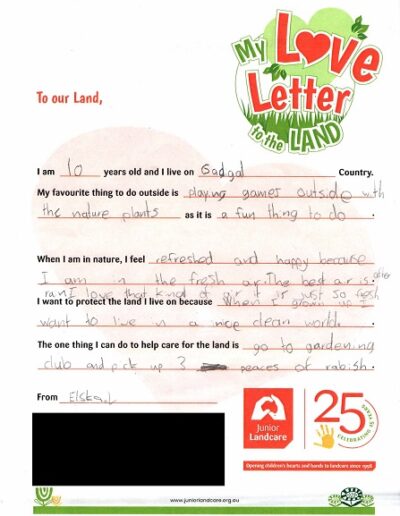 My Love
Letter
to the LAND
To our Land,
I am 10 years old and I live on Gadgal Country.
My favourite thing to do outside is playing games outside with
the nature plants as it is a fun thing to do.
When I am in nature, I feel refreshed and happy because
I am in the fresh air. The best air is after
rain I love that kind of air it is just so fresh.
I want to protect the land I live on because When I grown up I
want to live in a nice clean world.
The one thing I can do to help care for the land is go to gardening
club and pick up 3 peaces of rabish.
From Elska.L
Junior
Landcare
25 YEARS
CELEBRATING
Opening children's hearts and hands to landcare since 1998
www.juniorlandcare.org.au